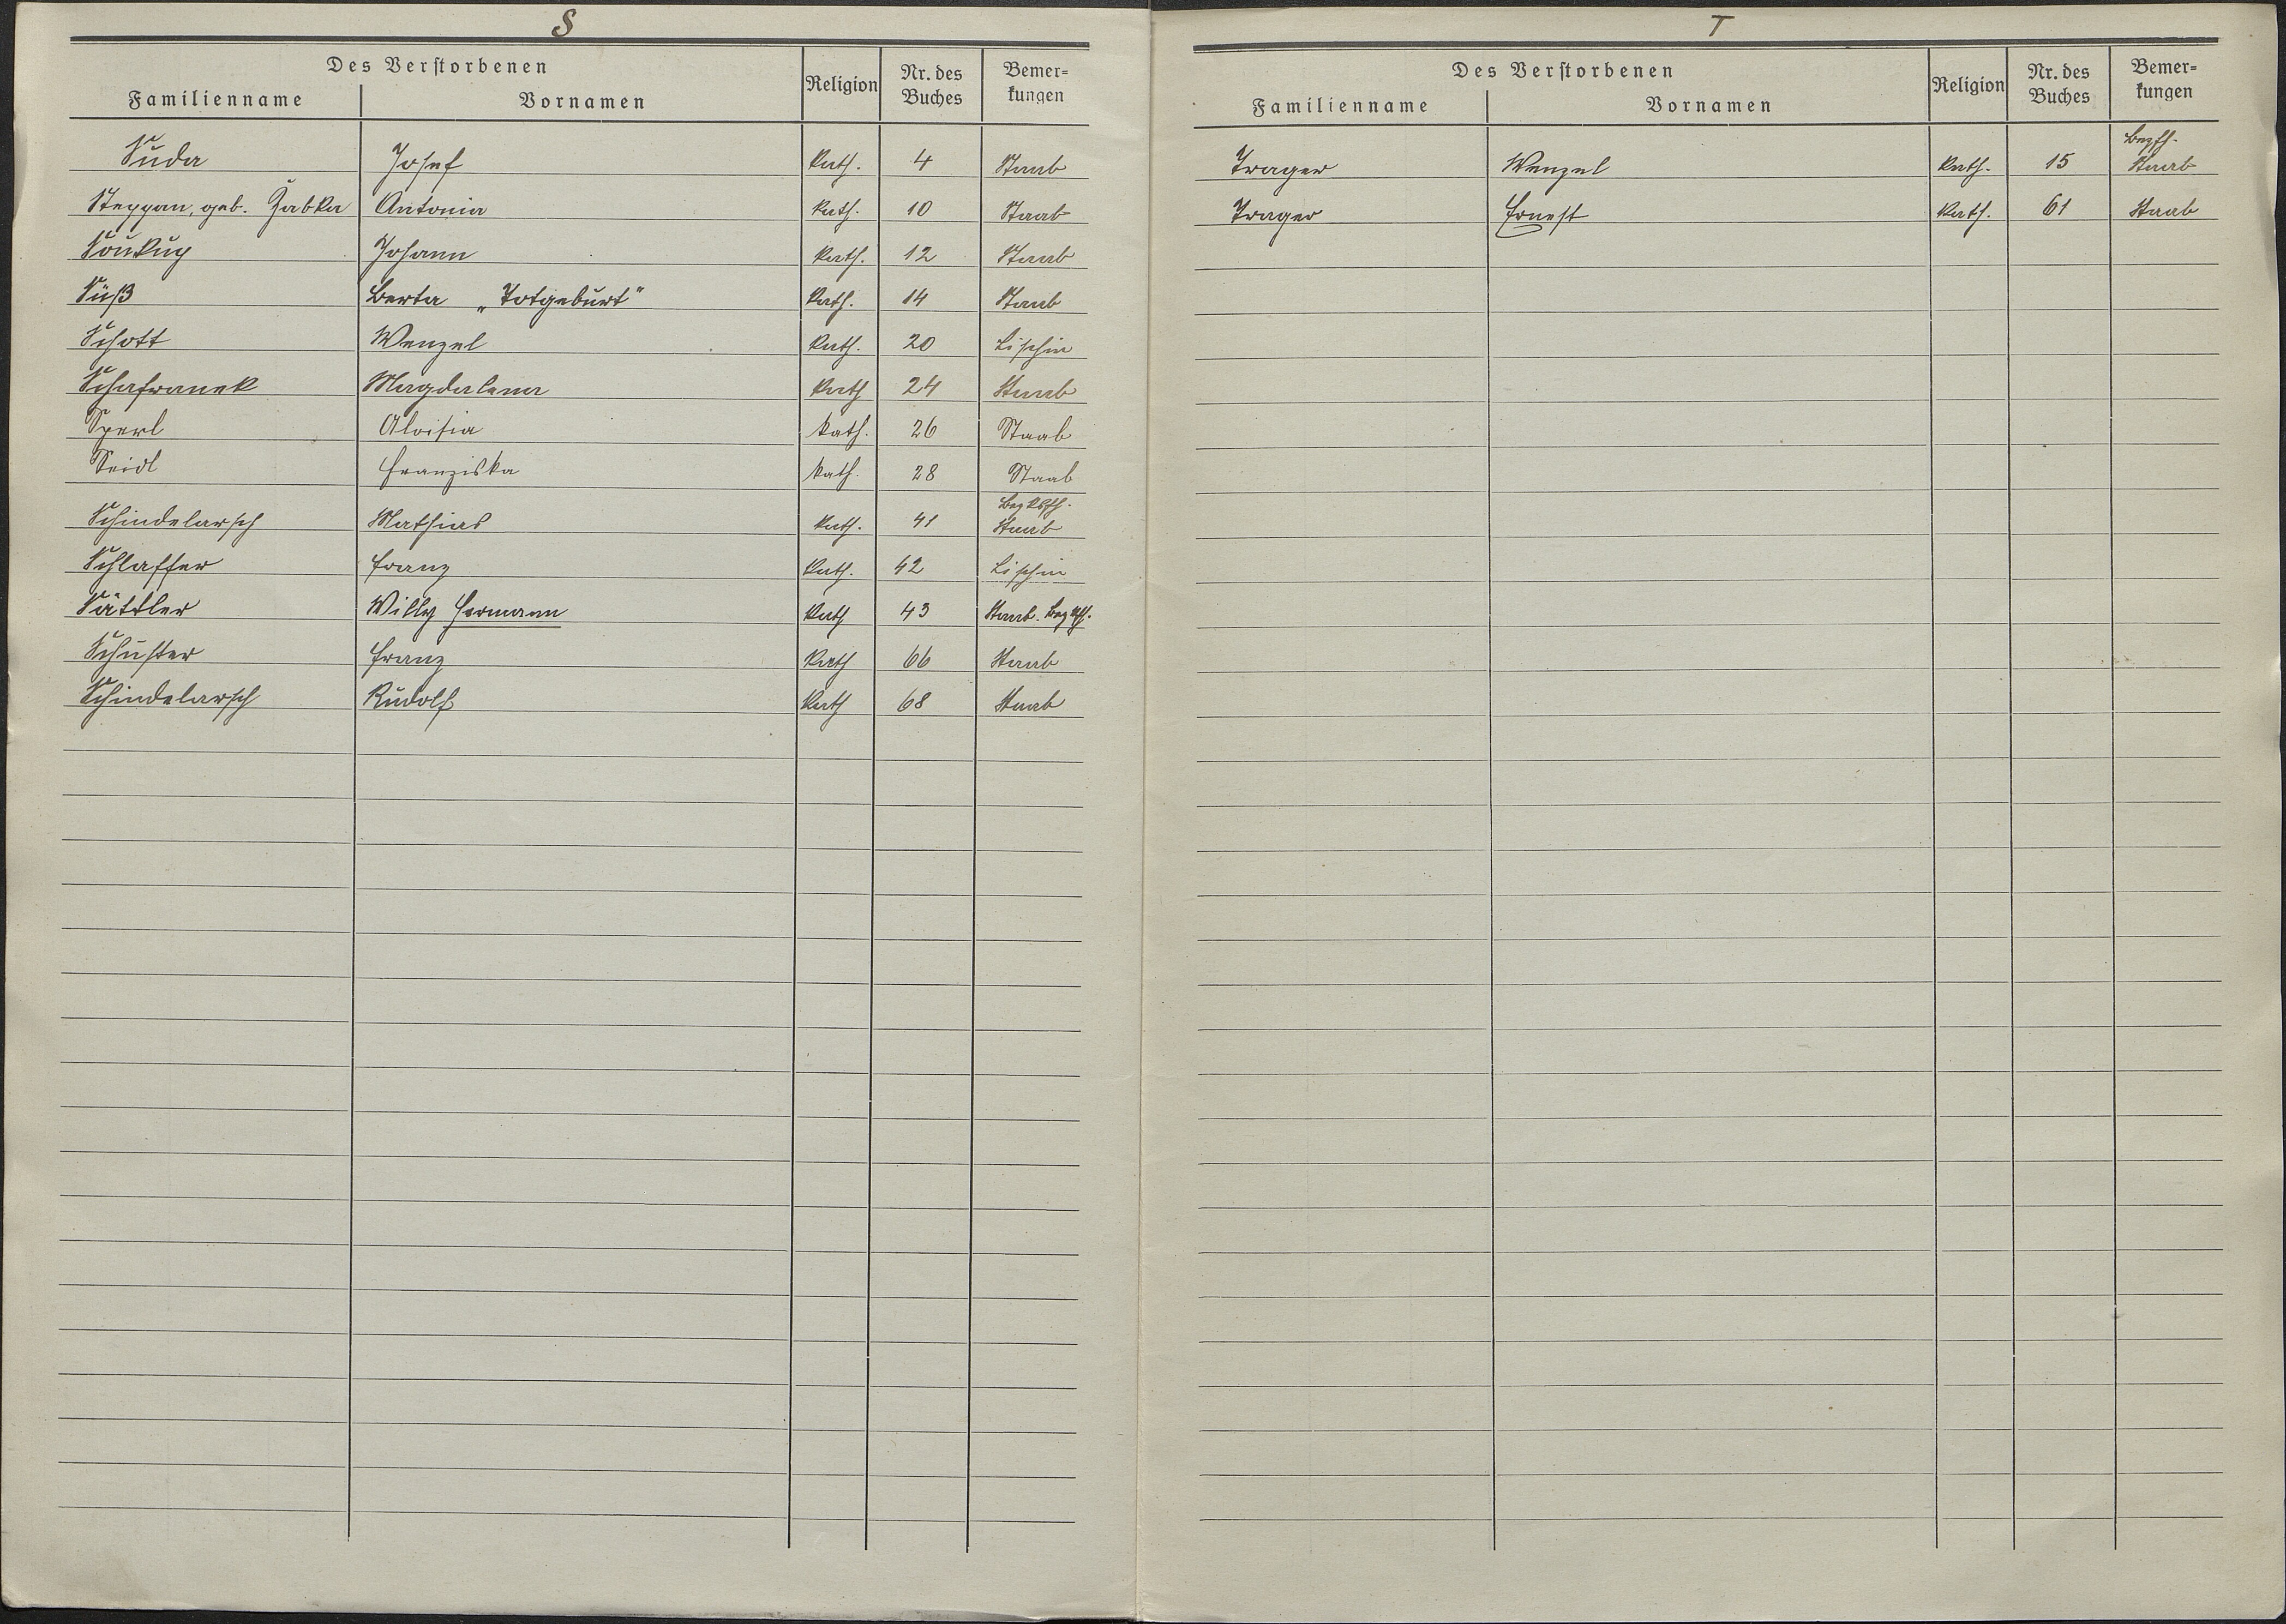 S
Des Verstorbenen
Familienname Vornamen Religion Nr. des Buches Bemer-kungen
Suda Josef kath. 4 Staab
Steppan, geb. Žabka Antonia kath. 10 Staab
Soukup Johann kath. 12 Staab
Süß Berta „Totgeburt" kath. 14 Staab
Schott Wenzel kath. 20 Lischin
Schafranek Magdalena kath 24 Staab
Sperl Aloisia kath. 26 Staab
Seidl Franziska kath. 28 Staab
Schindelarsch Mathias kath. 41 Staab
Schlaffer Franz kath. 42 Lischin
Sättler Willy Hermann kath 43 Staab.
Schuster Franz kath 66 Staab
Schindelarsch Rudolf kath 68 Staab
T
Des Verstorbenen
Familienname Vornamen Religion Nr. des Buches Bemer-kungen
Trager Wenzel kath. 15 Staab
Trager Ernest kath. 61 Staab